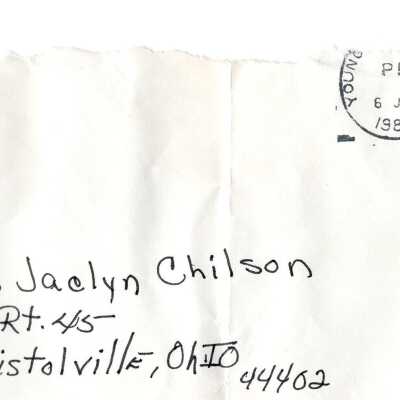 YOUNG
P
6 J
198
Jaclyn Chilson
Rt. 45
istolville, OhIO
44402